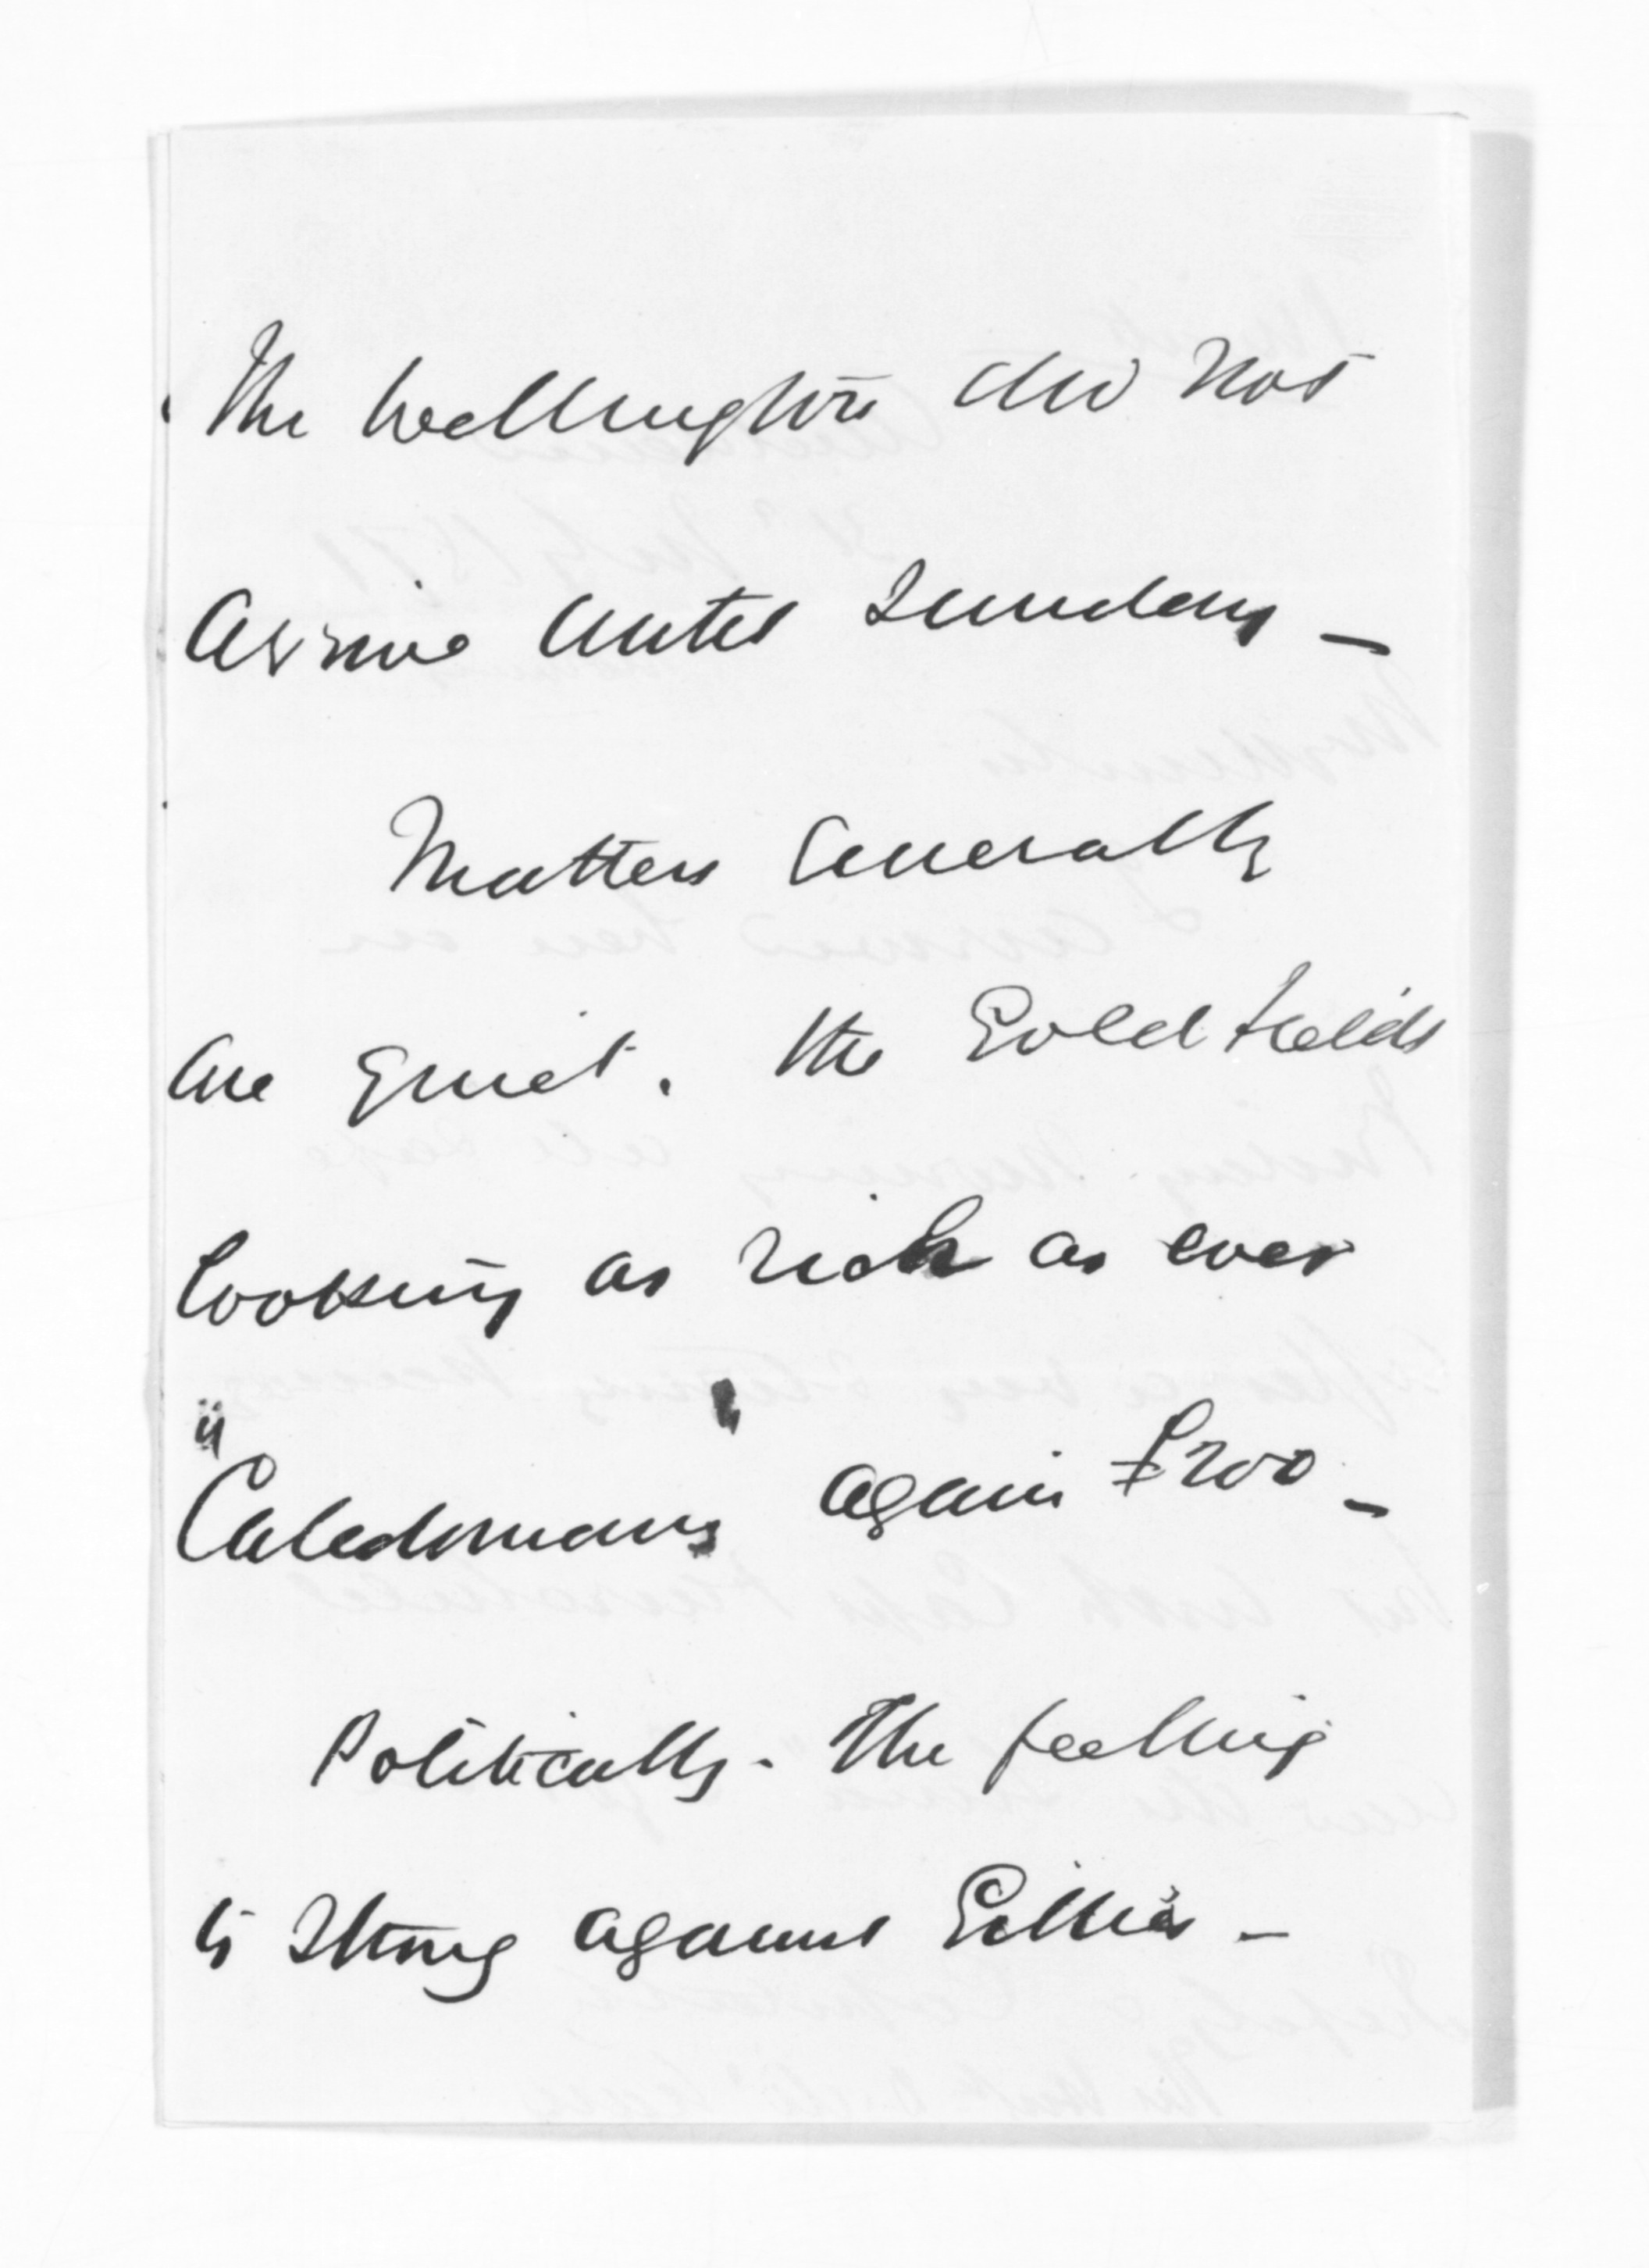 The Wellington did not
arrive until Sunday _
Matters Generally
are quiet. the Goldfields
looking as rich as ever
"Caledonians" again £200 _
Politically. The feeling
is strong against Gillies _